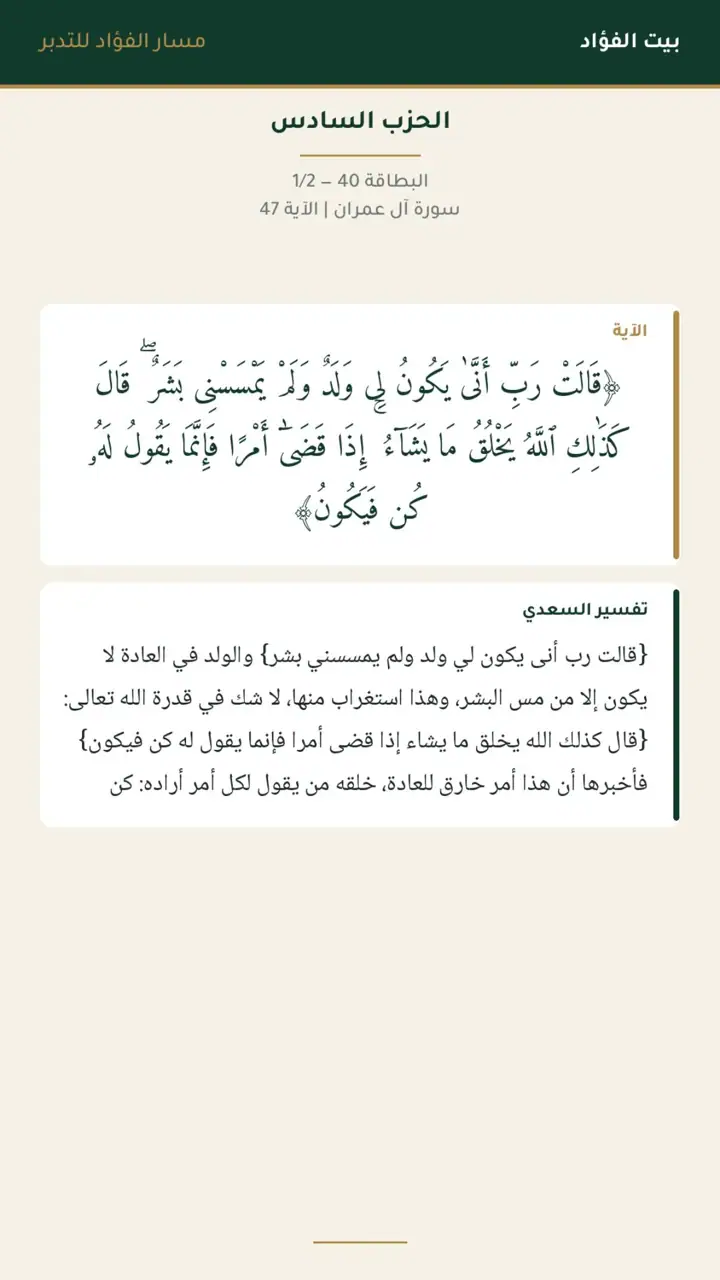 بيت الفؤاد
مسار الفؤاد للتدبر
الحزب السادس
البطاقة 40 – 1/2
سورة آل عمران | الآية 47
الآية
﴿قَالَتْ رَبِّ أَنَّىٰ يَكُونُ لِى وَلَدٌ وَلَمْ يَمْسَسْنِى بَشَرٌ ۖ قَالَ
كَذَٰلِكِ ٱللَّهُ يَخْلُقُ مَا يَشَآءُ ۚ إِذَا قَضَىٰٓ أَمْرًا فَإِنَّمَا يَقُولُ لَهُۥ
كُن فَيَكُونُ﴾
تفسير السعدي
{قالت رب أنى يكون لي ولد ولم يمسسني بشر} والولد في العادة لا
يكون إلا من مس البشر، وهذا استغراب منها، لا شك في قدرة الله تعالى:
{قال كذلك الله يخلق ما يشاء إذا قضى أمرا فإنما يقول له كن فيكون}
فأخبرها أن هذا أمر خارق للعادة، خلقه من يقول لكل أمر أراده: كن